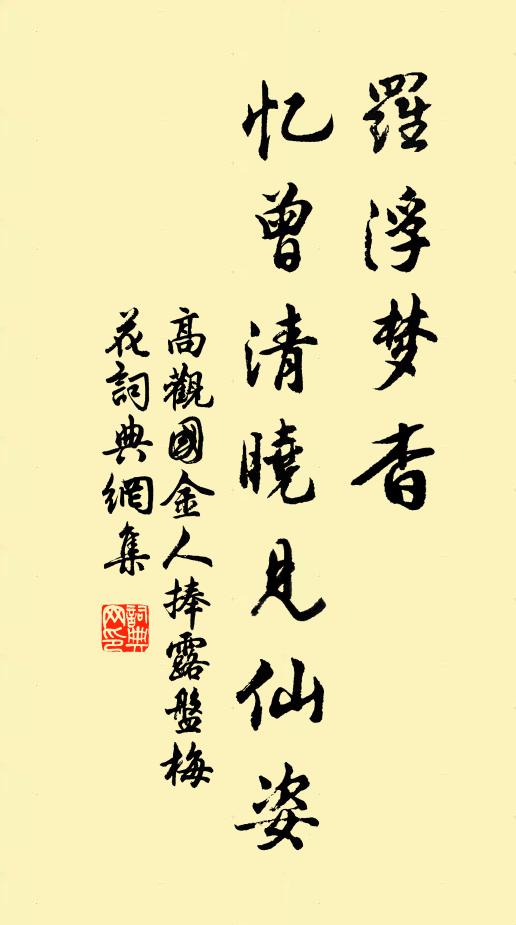 羅浮梦杳
忆曾清曉見仙姿
高觀國金人捧露盤梅
花詞典網集
詞典網印